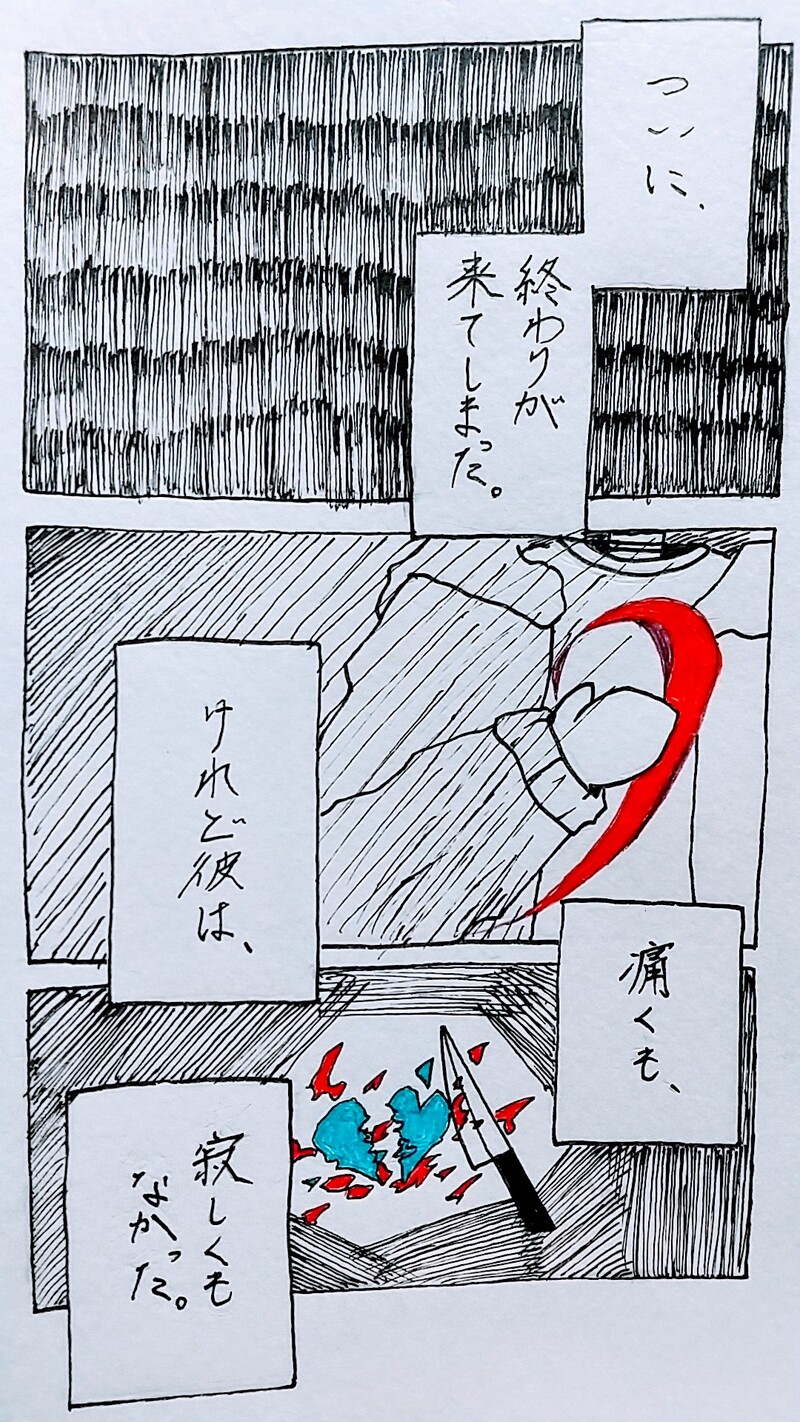 ついに、
終わりが
来てしまった。
けれど彼は、
痛くも、
寂しくも
なかった。